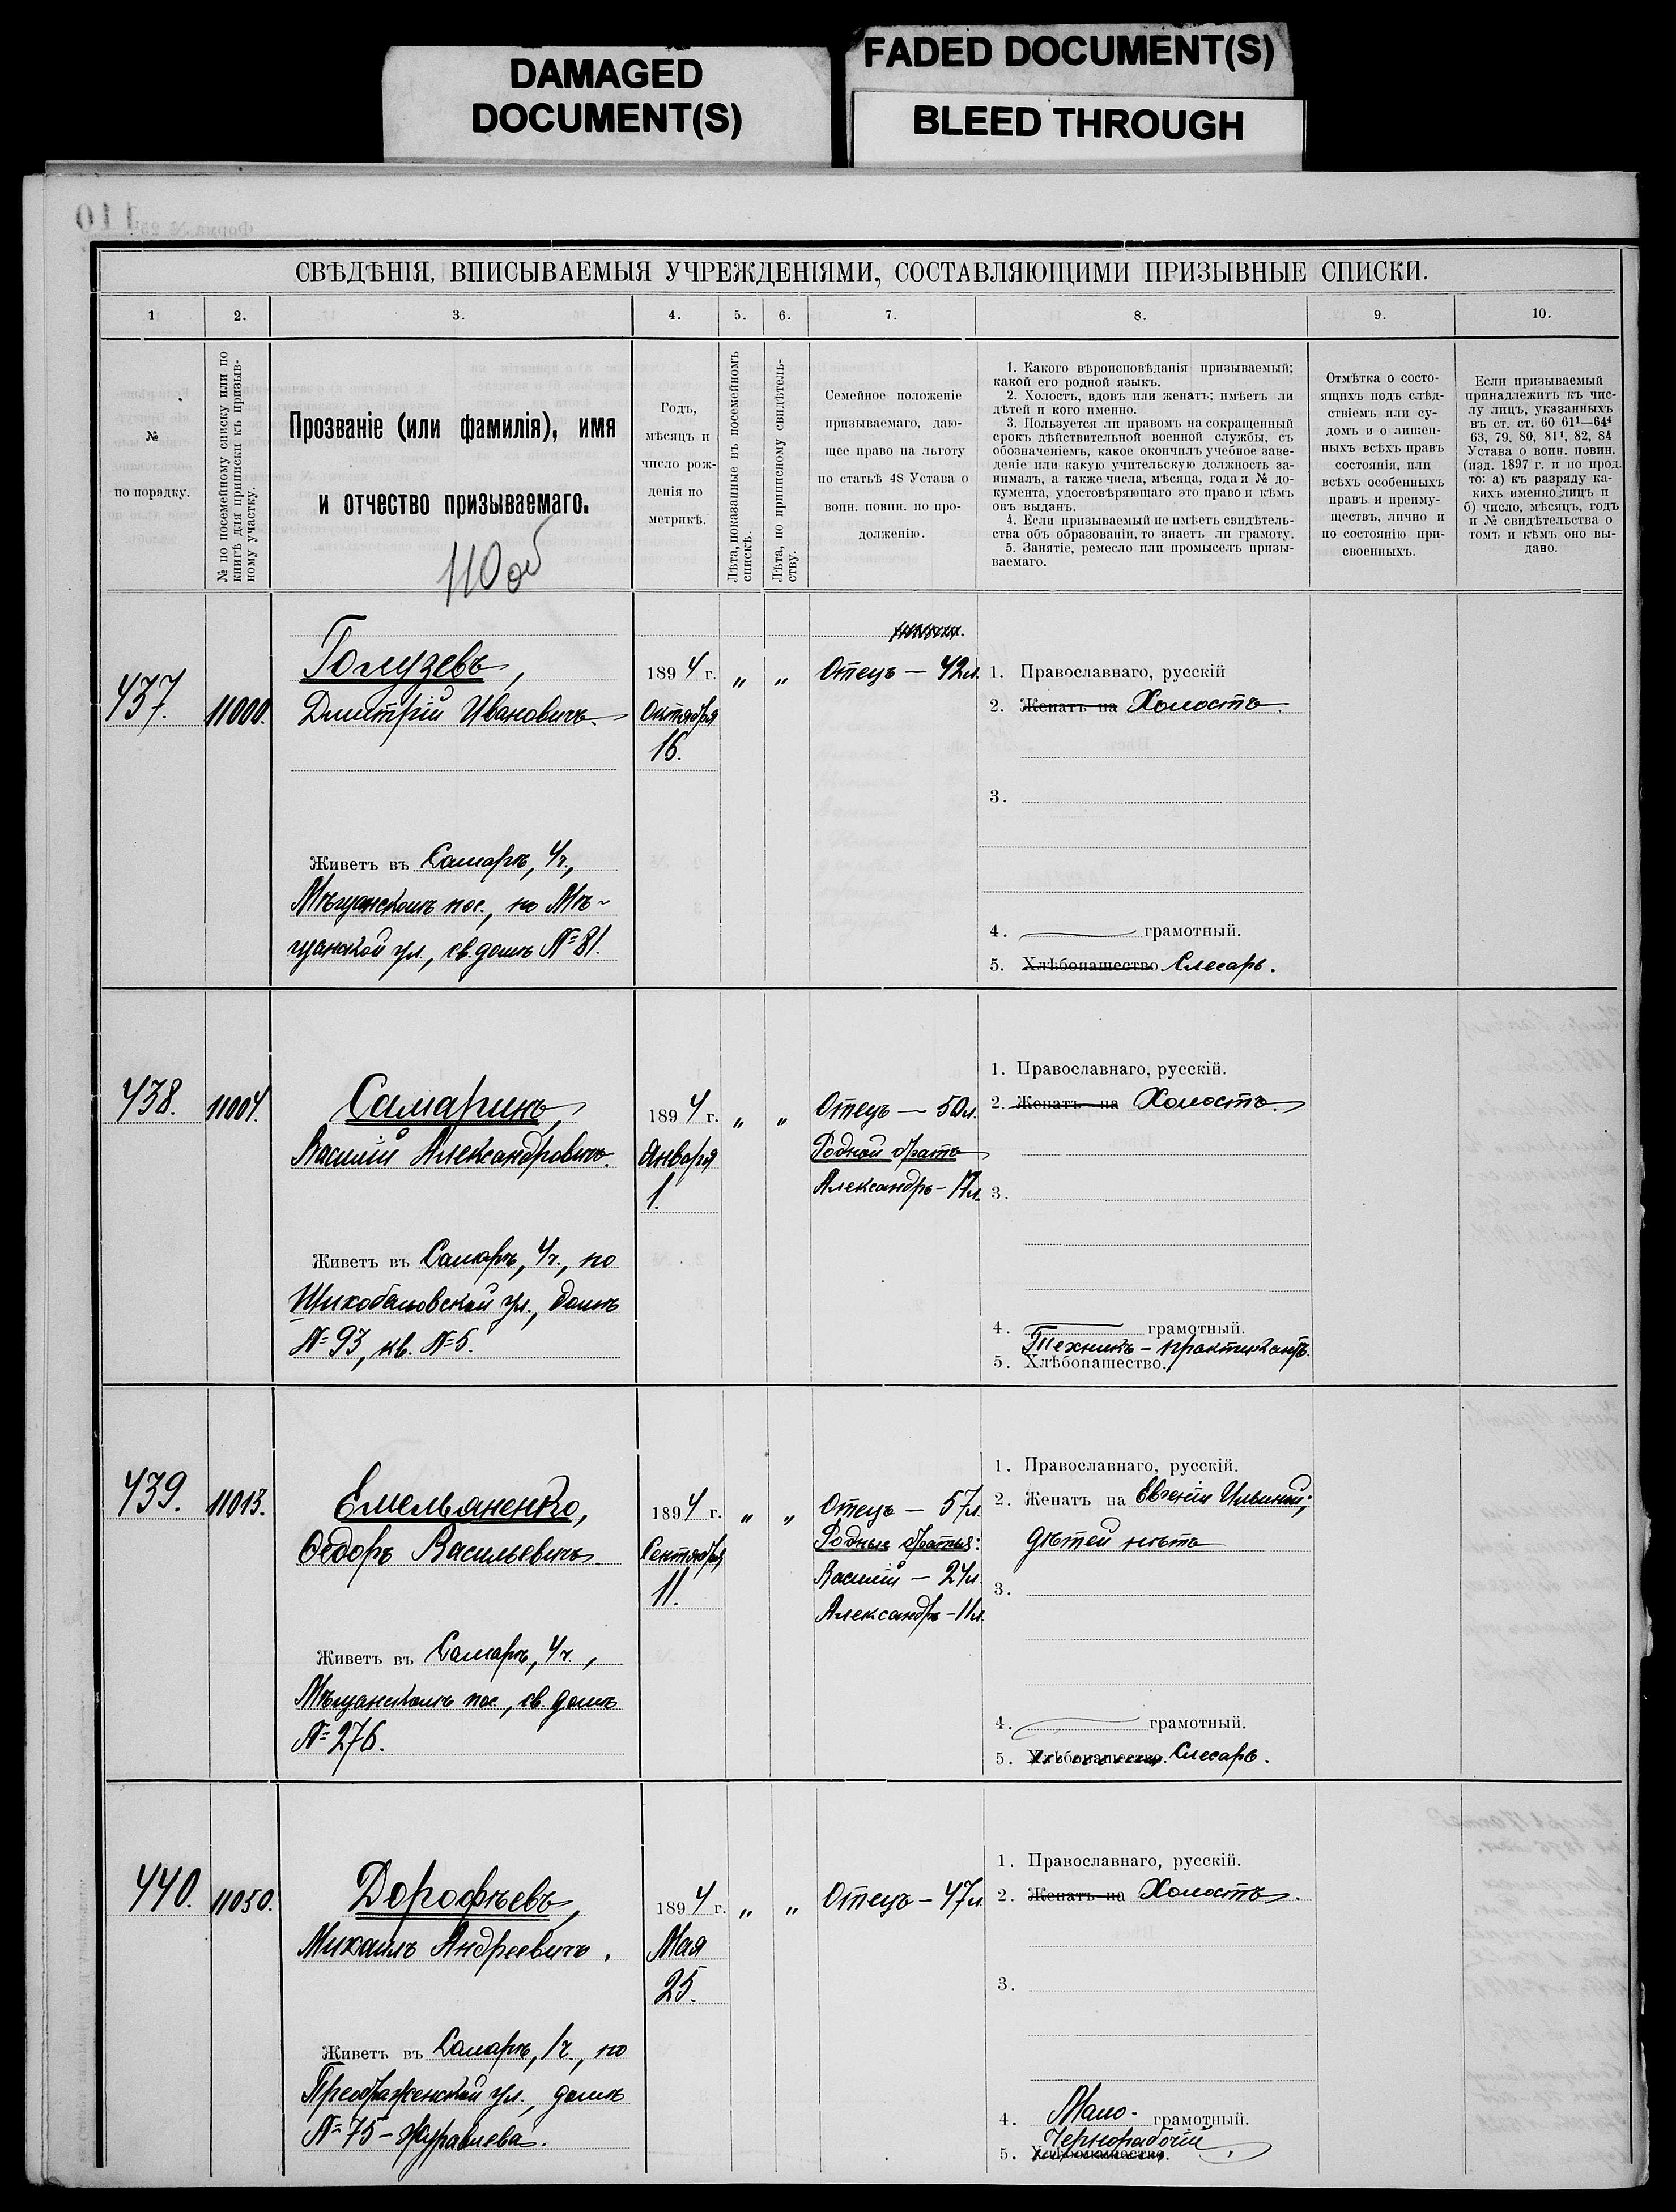 DAMAGED
DOCUMENT(S)
FADED DOCUMENT(S)
BLEED THROUGH
СВѢДѢНІЯ, ВПИСЫВАЕМЫЯ УЧРЕЖДЕНІЯМИ, СОСТАВЛЯЮЩИМИ ПРИЗЫВНЫЕ СПИСКИ.
1 2. 3. 4. 5. 6. 7. 8. 9. 10.
№
по порядку.
№ по посемейному списку или по
книгѣ для приписки къ призыв-
ному участку.
Прозваніе (или фамилія), имя
и отчество призываемаго.
110 об
Годъ,
мѣсяцъ и
число рож-
денія по
метрикѣ.
Лѣта, показанные въ посемейномъ
спискѣ.
Лѣта, по приписному свидѣтель-
ству.
Семейное положеніе
призываемаго, даю-
щее право на льготу
по статьѣ 48 Устава о
воин. повин. по про-
долженію.
1. Какого вѣроисповѣданія призываемый;
какой его родной языкъ.
2. Холостъ, вдовъ или женатъ; имѣетъ ли
дѣтей и кого именно.
3. Пользуется ли правомъ на сокращенный
срокъ дѣйствительной военной службы, съ
обозначеніемъ, какое окончилъ учебное заве-
деніе или какую учительскую должность за-
нималъ, а также числа, мѣсяца, года и № до-
кумента, удостовѣряющаго это право и кѣмъ
онъ выданъ.
4. Если призываемый не имѣетъ свидѣтель-
ства объ образованіи, то знаетъ ли грамоту.
5. Занятіе, ремесло или промыселъ призы-
ваемаго.
Отмѣтка о состо-
ящихъ подъ слѣд-
ствіемъ или су-
домъ и о лишен-
ныхъ всѣхъ правъ
состоянія, или
всѣхъ особенныхъ
правъ и преиму-
ществъ, лично и
по состоянію при-
своенныхъ.
Если призываемый
принадлежитъ къ чис-
лу лицъ, указанныхъ
въ ст. ст. 60 61¹—64⁴
63, 79, 80, 81¹, 82, 84
Устава о воин. повин.
(изд. 1897 г. и по прод.
то: а) къ разряду ка-
кихъ именно лицъ и
б) число, мѣсяцъ, годъ
и № свидѣтельства о
томъ и кѣмъ оно вы-
дано.
437. 11000.
Голузевъ,
Дмитрій Ивановичъ.
Живетъ въ Самарѣ, 4 ч.,
Мѣщанскомъ пос., по Мѣ-
щанской ул., св. домъ № 81.
1894 г.
Октября
16.
" "
Отецъ — 42 л.
1. Православнаго, русскій
2. Женатъ на Холостъ.
3.
4. грамотный.
5. Хлѣбопашество Слесарь.
438. 11004.
Самаринъ,
Василій Александровичъ.
Живетъ въ Самарѣ, 4 ч., по
Шихобаловской ул., домъ
№ 93, кв. № 5.
1894 г.
Января
1.
" "
Отецъ — 50 л.
Родной братъ
Александръ — 17 л.
1. Православнаго, русскій.
2. Женатъ на Холостъ.
3.
4. грамотный.
Техникъ - практикантъ.
5. Хлѣбопашество.
439. 11013.
Емельяненко,
Ѳедоръ Васильевичъ.
Живетъ въ Самарѣ, 4 ч.,
Мѣщанскомъ пос., св. домъ
№ 276.
1894 г.
Сентября
11.
" "
Отецъ — 57 л.
Родные братья:
Василій — 24 л.
Александръ — 11 л.
1. Православнаго, русскій.
2. Женатъ на Евгеніи Ильиной;
дѣтей нѣтъ
3.
4. грамотный.
5. Хлѣбопашество. Слесарь.
440. 11050.
Дорофѣевъ,
Михаилъ Андреевичъ.
Живетъ въ Самарѣ, 1 ч., по
Преображенской ул., домъ
№ 75 - Журавлева.
1894 г.
Мая
25.
" "
Отецъ — 47 л.
1. Православнаго, русскій.
2. Женатъ на Холостъ.
3.
4. Мало- грамотный.
Чернорабочій
5. Хлѣбопашество.